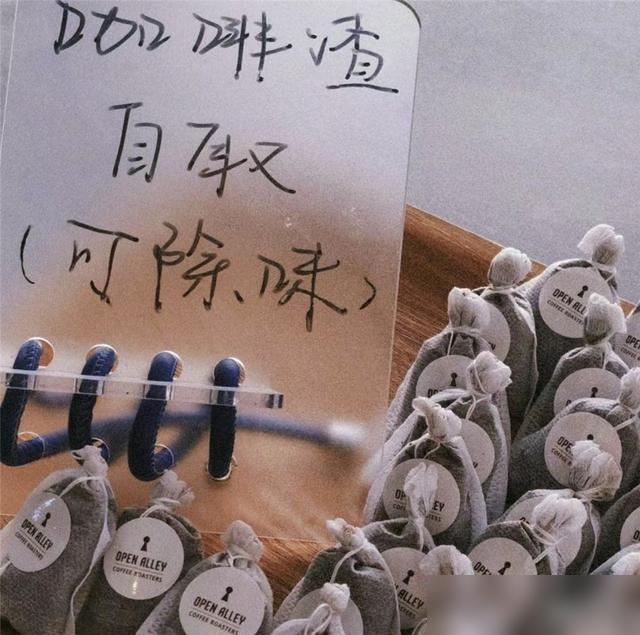 咖啡渣
自取
(可除味)
OPEN ALLEY
COFFEE ROASTERS
OPEN ALLEY
COFFEE ROASTERS
OPEN ALLEY
COFFEE ROASTERS
OPEN ALLEY
COFFEE ROASTERS
OPEN ALLEY
OPEN
OPEN
OPEN
OPEN
OPEN ALLEY